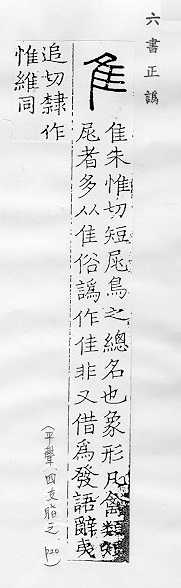 六書正譌
隹
隹朱惟切短𡱂鳥之總名也象形凡禽類短
𡱂者多从隹俗譌作佳非又借為發語辭夷
追切隸作
惟維同
(平聲 四支脂之 p20)